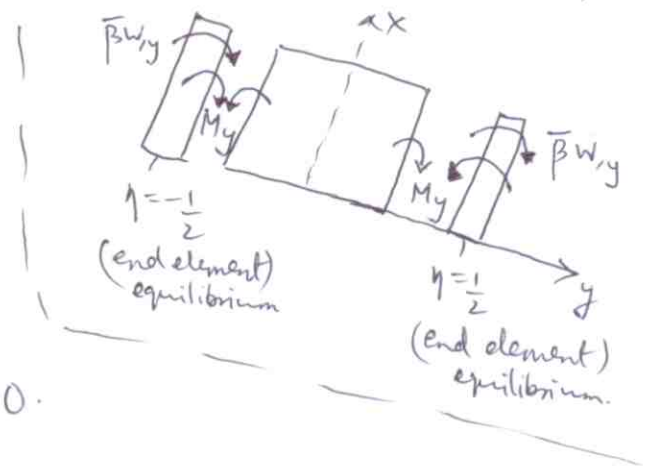 x
β̄w,y
My
My
β̄w,y
η=-1/2
(end element)
equilibrium
η=1/2
y
(end element)
equilibrium.
0.